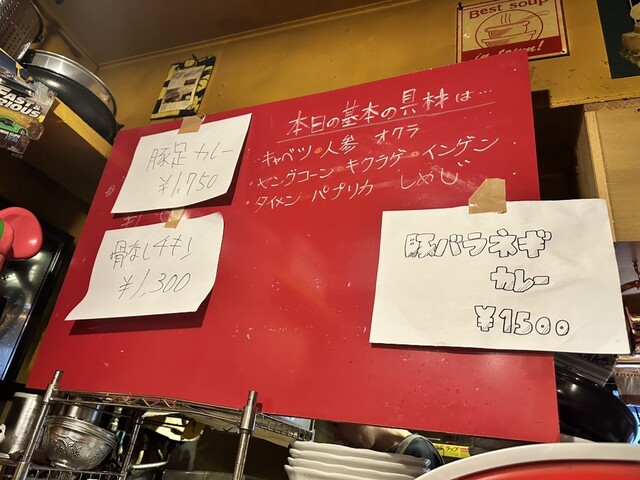 Best soup
in town!
本日の基本の具材は…
キャベツ・人参 オクラ
・ヤングコーン・キクラゲ・インゲン
・タイメン パプリカ しめじ
豚足カレー
¥1,750
骨なしチキン
¥1,300
豚バラネギ
カレー
¥1500